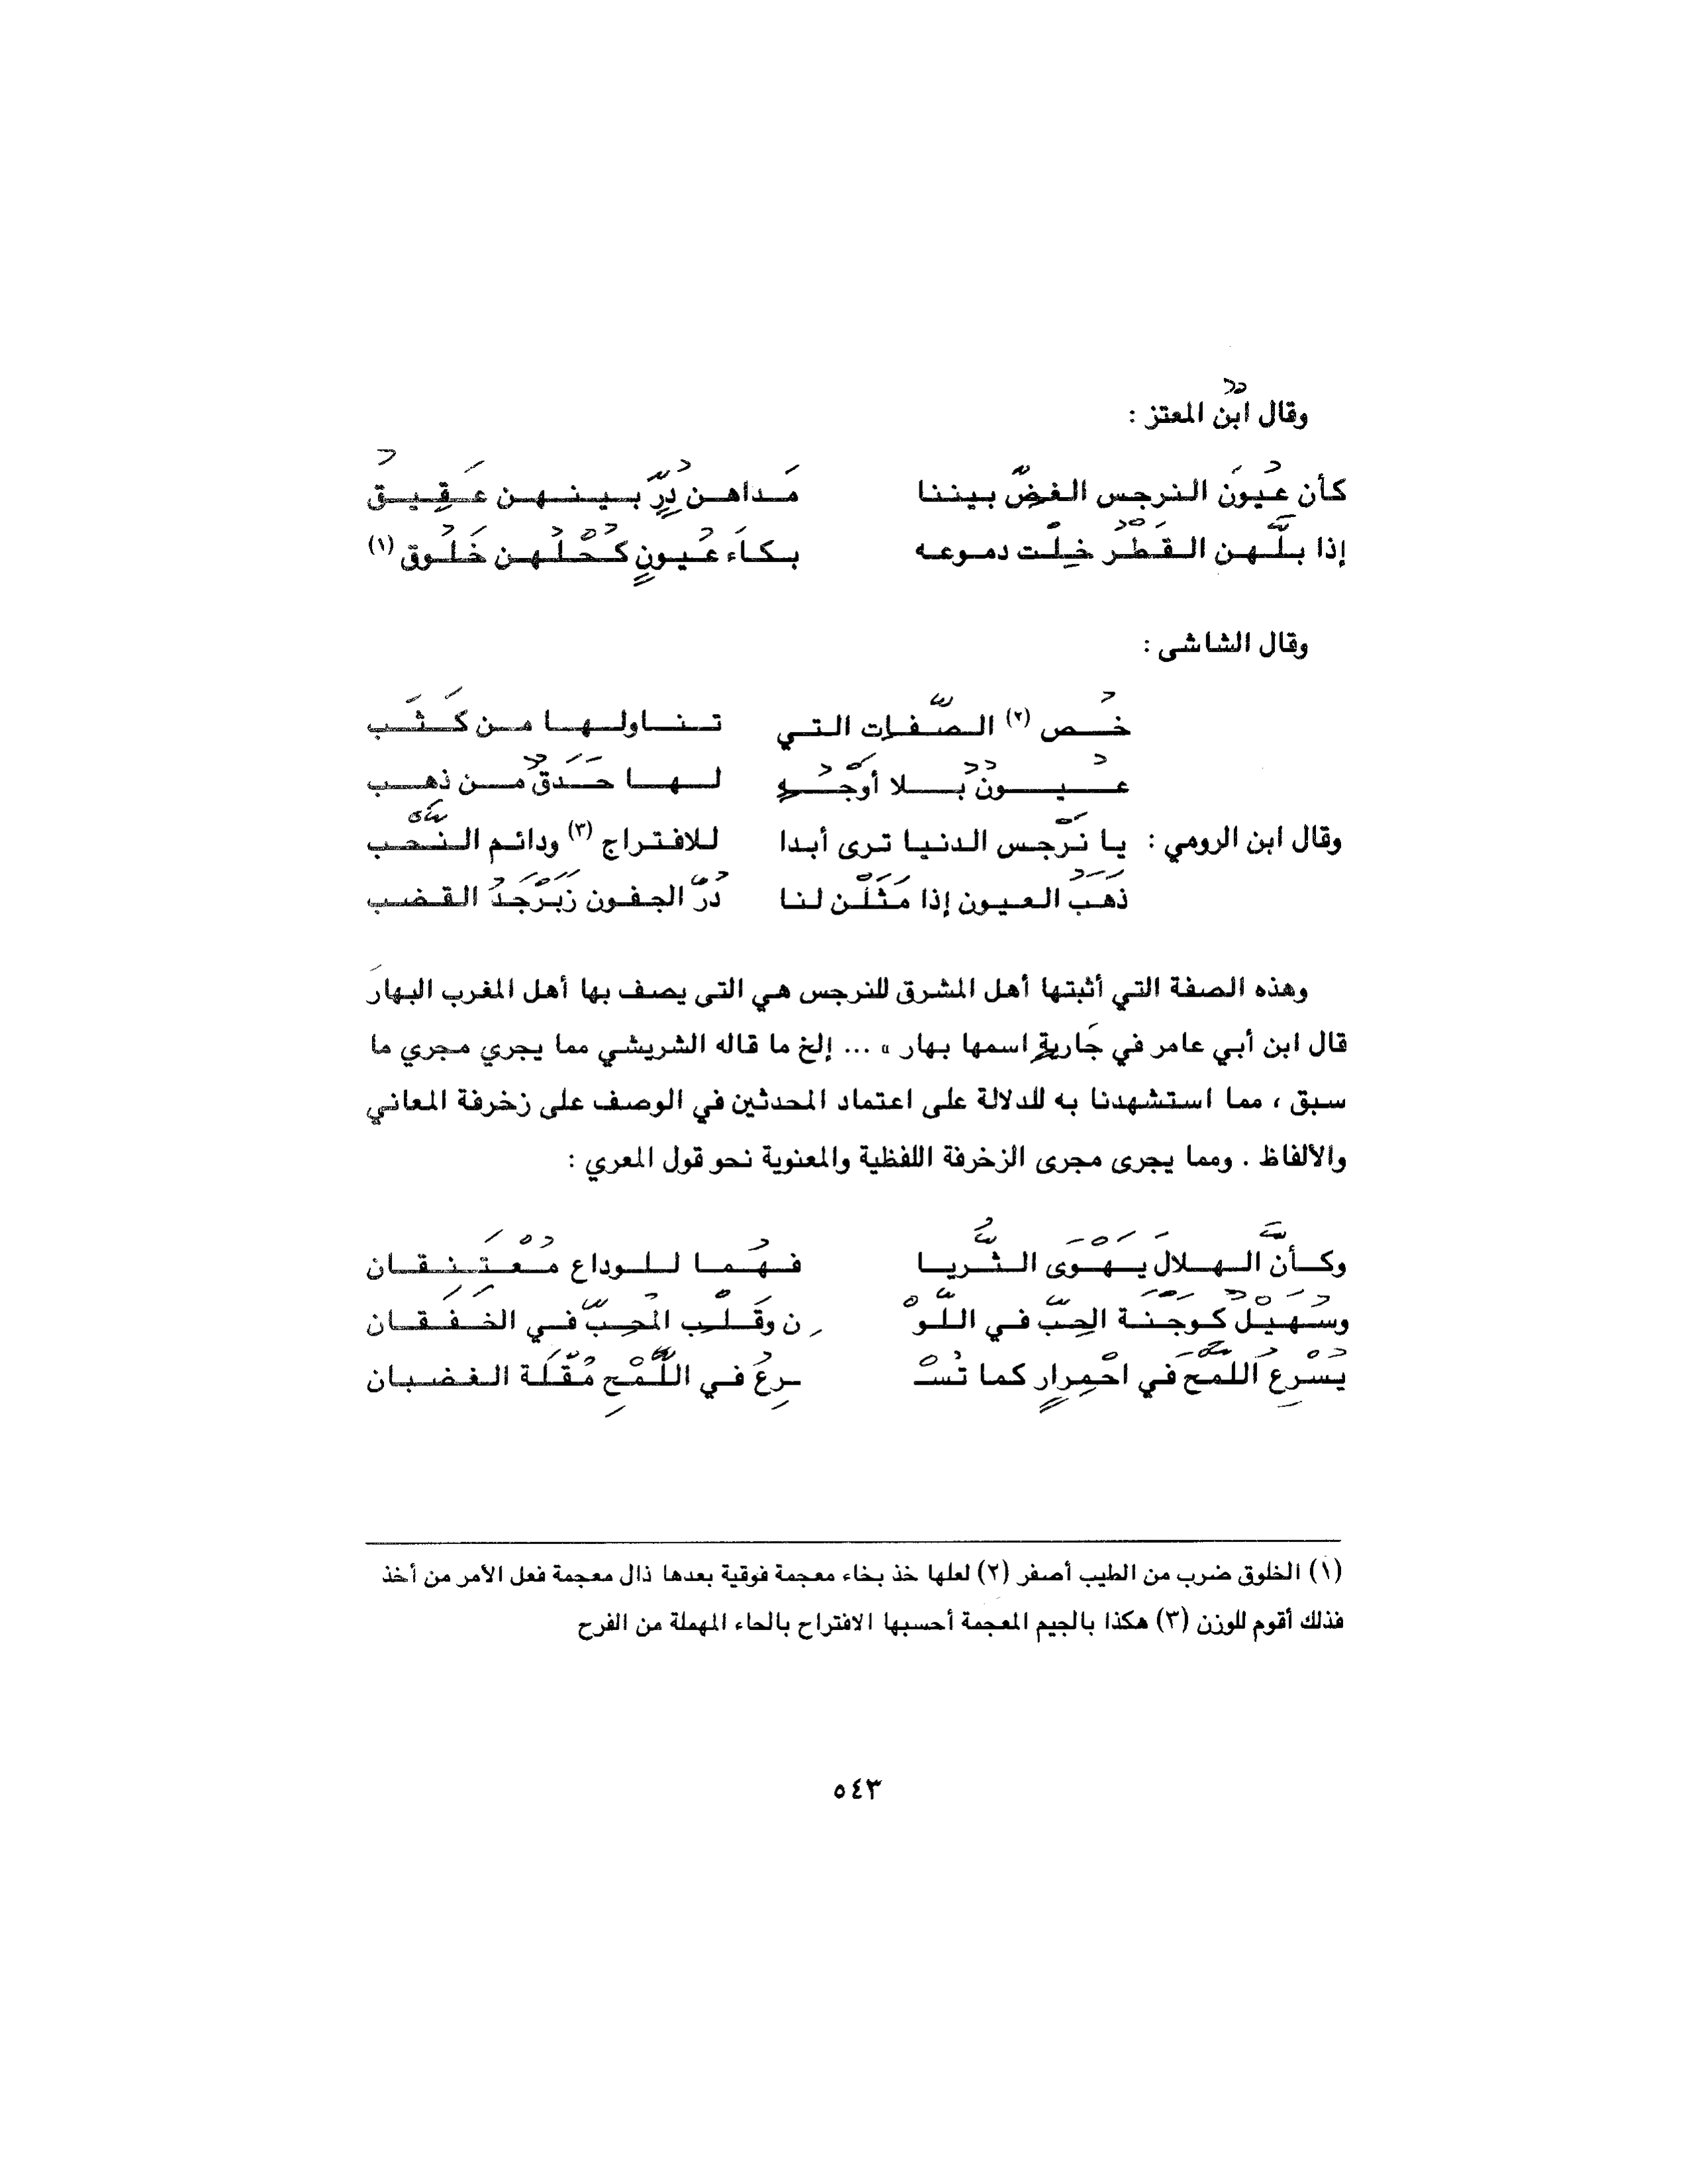 وقال ابنُ المعتز :
كأن عُيونَ النرجس الغضِّ بيننا مَداهن دُرٍّ بينهن عَقِيقُ
إذا بلَّهن القَطْرُ خِلْت دموعه بكاَء عُيونٍ كُحْلُهن خَلُوق (١)
وقال الشاشى :
خُص (٢) الصِّفات التي تناولها من كَثَب
عُيونٌ بلا أوْجُهٍ لها حَدَقٌ من ذهب
وقال ابن الرومي : يا نَرْجس الدنيا ترى أبدا للافتراج (٣) ودائم النَّحب
ذهَبُ العيون إذا مَثَلْن لنا دُرُّ الجفون زَبَرْجَدُ القضب
وهذه الصفة التي أثبتها أهل المشرق للنرجس هي التى يصف بها أهل المغرب البهارَ
قال ابن أبي عامر في جَاريةٍ اسمها بهار » ... إلخ ما قاله الشريشي مما يجري مجري ما
سبق ، مما استشهدنا به للدلالة على اعتماد المحدثين في الوصف على زخرفة المعاني
والألفاظ . ومما يجرى مجرى الزخرفة اللفظية والمعنوية نحو قول المعري :
وكأنَّ الهلالَ يَهْوَى الثُّريا فهُما للوداع مُعْتَنِقان
وسُهَيْلٌ كوجْنَة الحِبِّ في اللَّوْ نِ وقَلْب المُحِبِّ في الخفَقَان
يُسْرِعُ اللَّمْحَ في احْمِرارٍ كما تُسْـ ـرِعُ في اللَّمْحِ مُقْلَة الغضبان
(١) الخلوق ضرب من الطيب أصفر (٢) لعلها خذ بخاء معجمة فوقية بعدها ذال معجمة فعل الأمر من أخذ
فذلك أقوم للوزن (٣) هكذا بالجيم المعجمة أحسبها الافتراح بالحاء المهملة من الفرح
٥٤٣